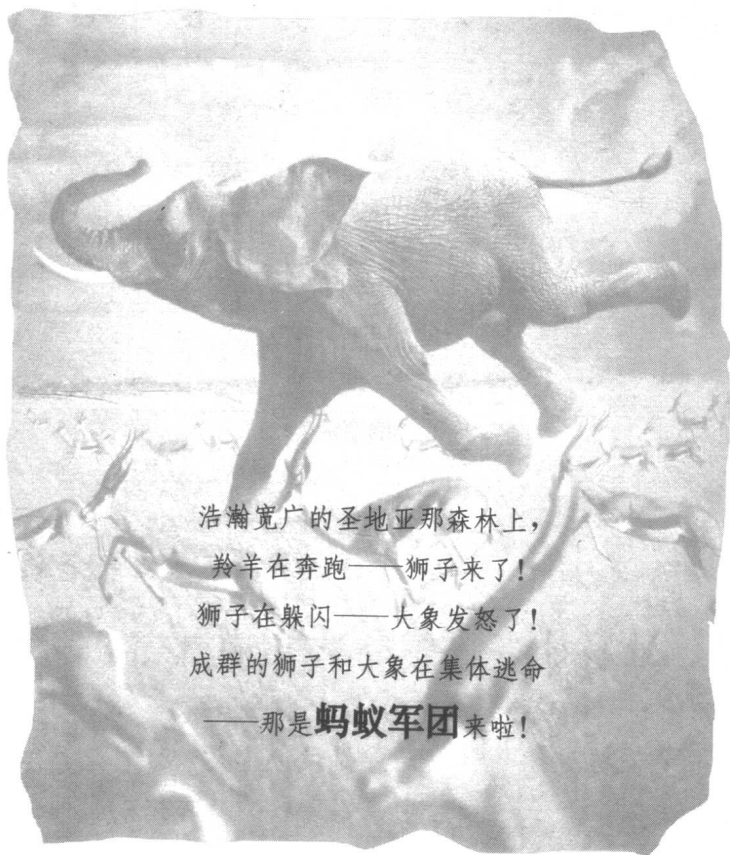 浩瀚宽广的圣地亚那森林上，
羚羊在奔跑——狮子来了！
狮子在躲闪——大象发怒了！
成群的狮子和大象在集体逃命
——那是蚂蚁军团来啦！